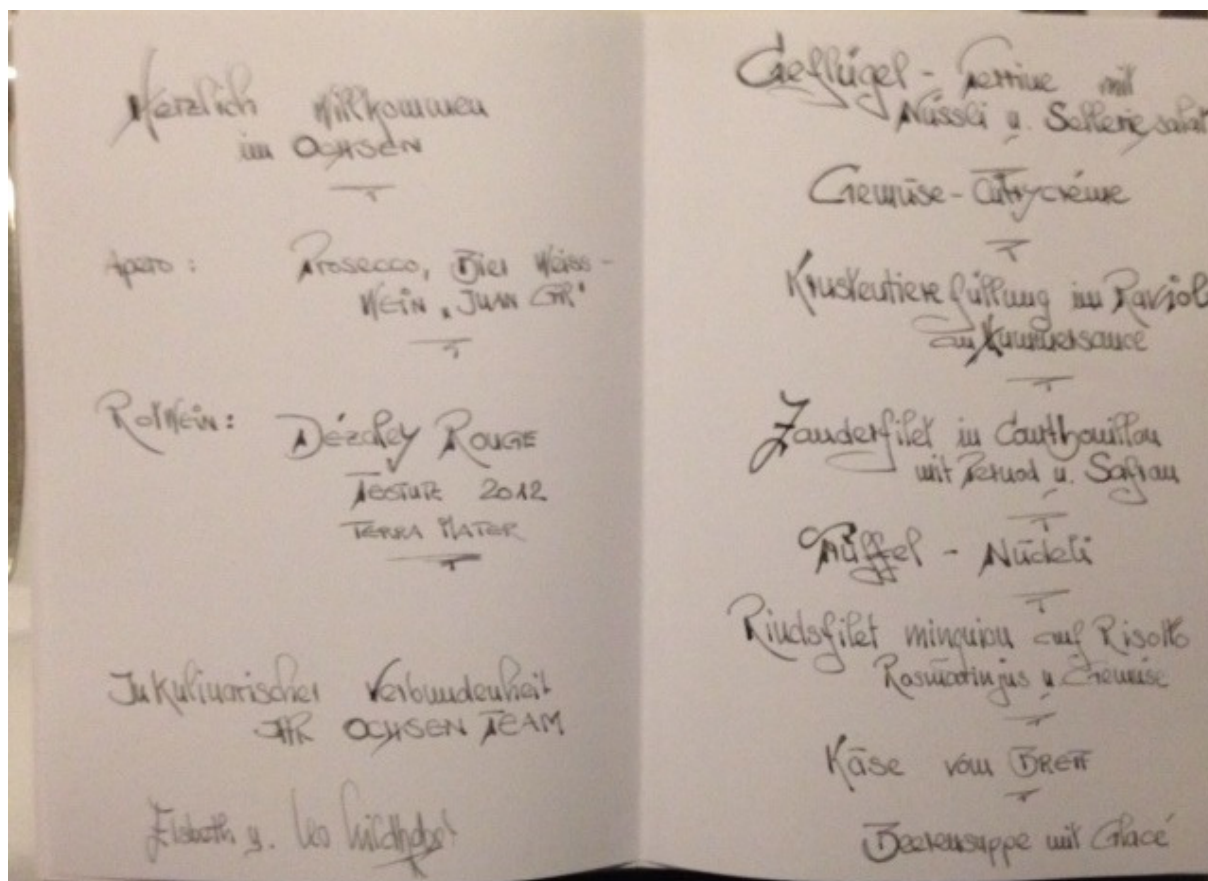 Herzlich Willkommen
im OCHSEN
Apero : Prosecco, Bier Weiss-
WEIN "JUAN
ROTWEIN : DÉZALEY ROUGE
TESTUZ 2012
TERRA MATER
In Kulinarischer Verbundenheit
IHR OCHSEN TEAM
Elsbeth u. Leo
Geflügel - Terrine mit
Nüssli u. Selleriesalat
Gemüse - Currycréme
Krustentierefüllung im Ravioli
an Hummersauce
Zanderfilet in Courtbouillon
mit Pernod u. Safran
Trüffel - Nüdeli
Rindsfilet minguion auf Risotto
Rosmarinjus u. Gemüse
Käse vom BRETT
Beerensuppe mit Glacé